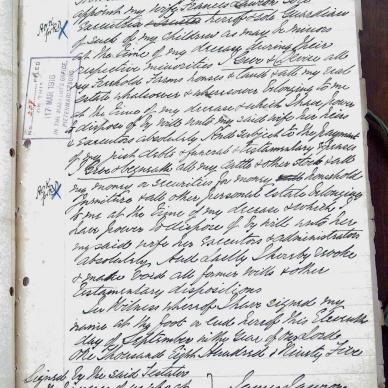 appoint my wife Frances
Executrix hereof & sole Guardian
of such of my children as may be minors
at the time of my decease during their
respective minorities I Give & Devise all
my Freehold Farms houses & lands & all my real
Estate whatsoever & wheresoever belonging to me
at the time of my decease & which I have power
to dispose of by will unto my said wife her heirs
& Executors absolutely And subject to the payment
of my just debts & funeral & testamentary expenses
I Give & bequeath all my Cattle & other Stock & all
my money or securities for money household
Furniture & all other Personal Estate belonging
to me at the time of my decease & which I
have power to dispose of by will unto her
my said wife her Executors & administrators
absolutely And Lastly I hereby revoke
& make void all former wills & other
Testamentary dispositions
In Witness whereof I have signed my
name at the foot or end hereof this
day of September in the year of our Lord
One Thousand Eight Hundred & Ninety Five
Signed by the said Testator
17 MAR 1916